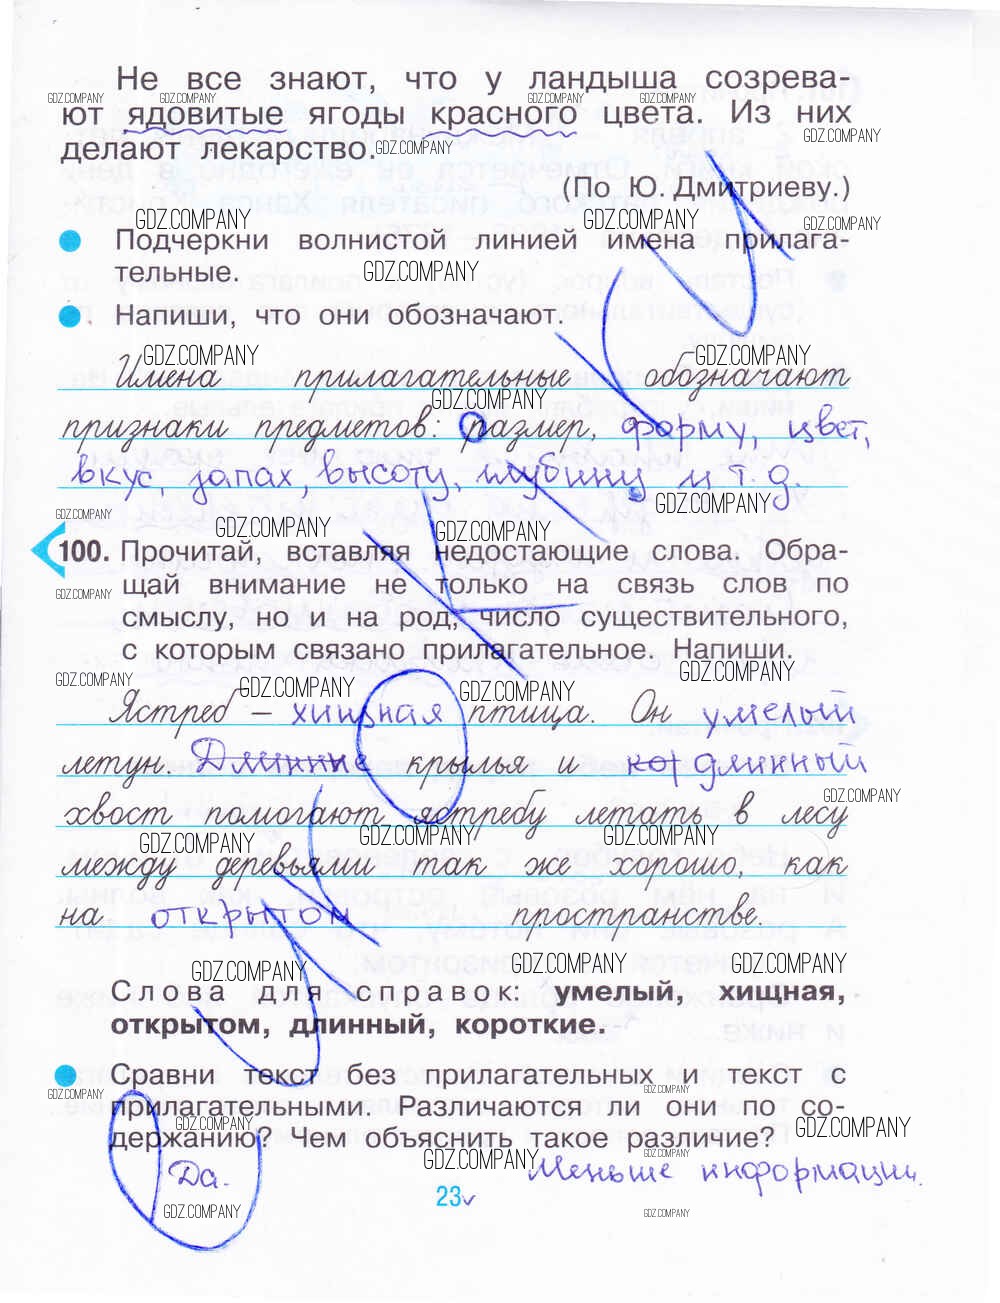 Не все знают, что у ландыша созрева-
ют ядовитые ягоды красного цвета. Из них
делают лекарство.
(По Ю. Дмитриеву.)
Подчеркни волнистой линией имена прилага-
тельные.
Напиши, что они обозначают.
Имена прилагательные обозначают
признаки предметов: размер, форму, цвет,
вкус, запах, высоту, глубину и т. д.
100. Прочитай, вставляя недостающие слова. Обра-
щай внимание не только на связь слов по
смыслу, но и на род, число существительного,
с которым связано прилагательное. Напиши.
Ястреб – хищная птица. Он умелый
летун. Длинные крылья и кор длинный
хвост помогают ястребу летать в лесу
между деревьями так же хорошо, как
на открытом пространстве.
Слова для справок: умелый, хищная,
открытом, длинный, короткие.
Сравни текст без прилагательных и текст с
прилагательными. Различаются ли они по со-
держанию? Чем объяснить такое различие?
Да. Меньше информации.
23
GDZ.COMPANY